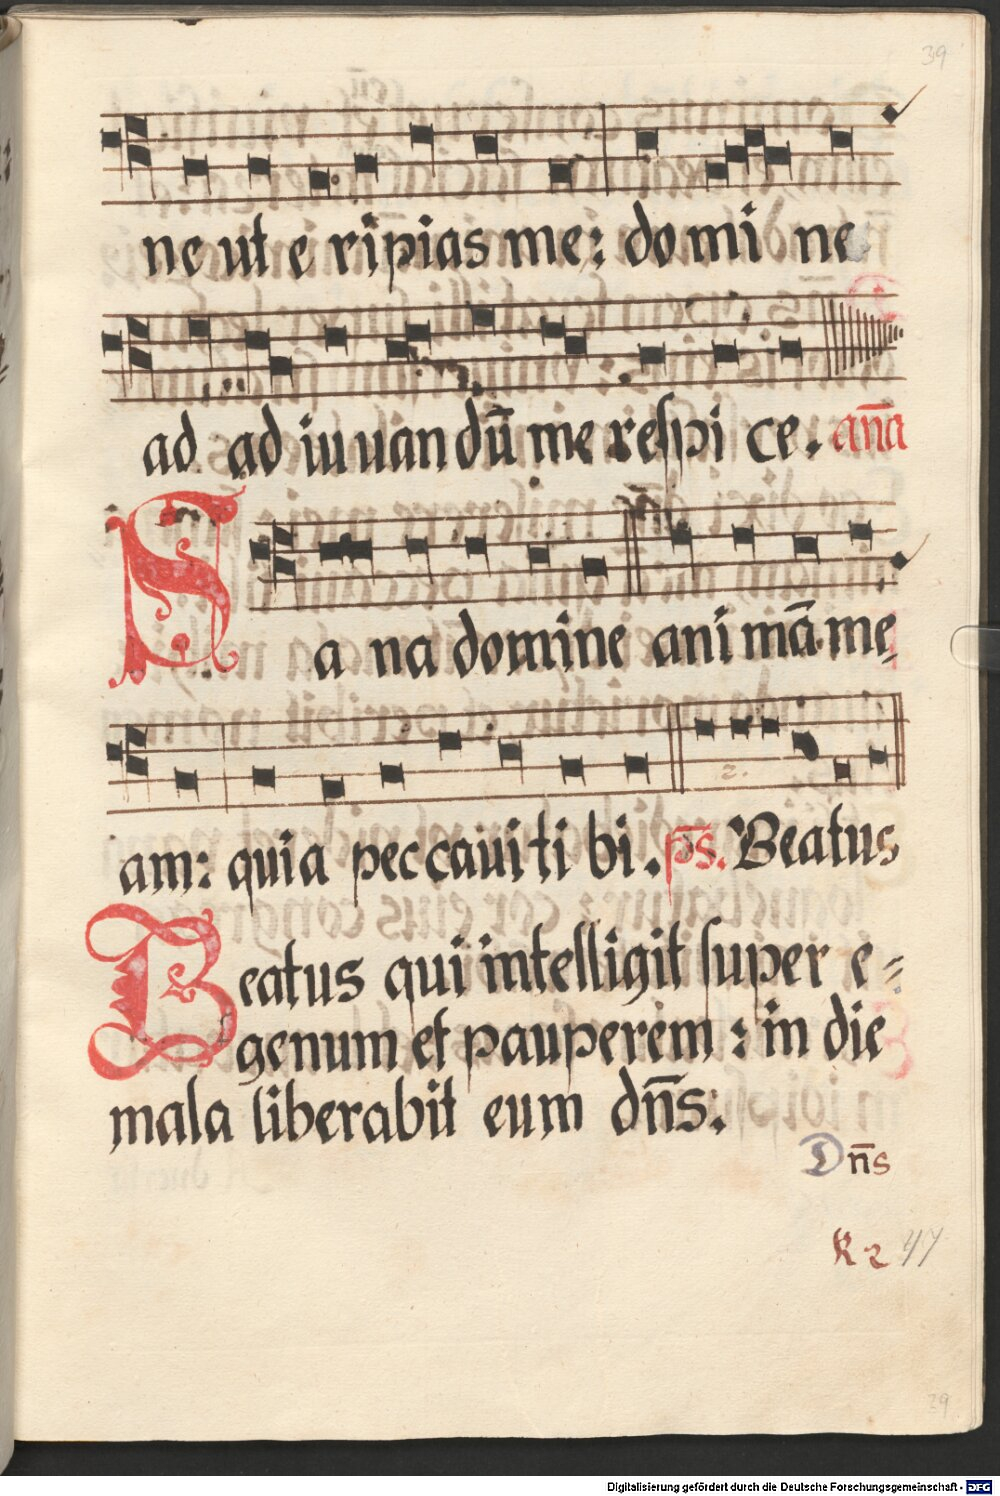 39
ne ut e ripias me: domi ne
ad ad iuuandū me respi ce. an̄a
Sa na domine animā me,
am: quia peccaui ti bi. ps̄. Beatus
2.
Beatus qui intelligit super e=
genum et pauperem : in die
mala liberabit eum dn̄s.
Dn̄s
K 2 47
39
Digitalisierung gefördert durch die Deutsche Forschungsgemeinschaft - DFG